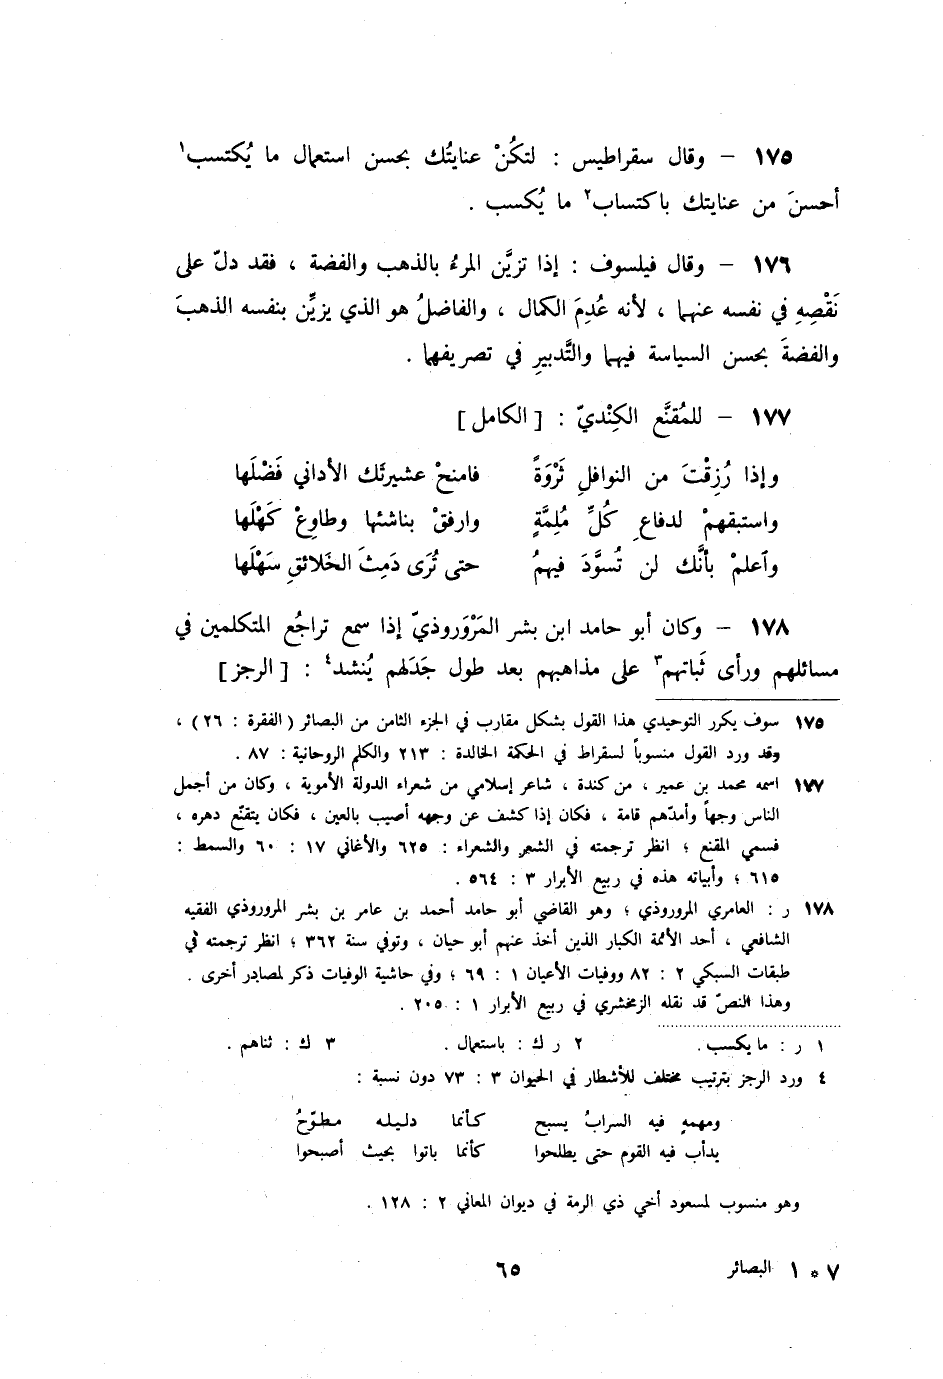 ١٧٥ – وقال سقراطيس : لتكُنْ عنايتُك بحسن استعمال ما يُكتسب١
أحسنَ من عنايتك باكتساب٢ ما يُكسب .
١٧٦ – وقال فيلسوف : إذا تزيَّن المرءُ بالذهب والفضة ، فقد دلّ على
نَقْصِهِ في نفسه عنهما ، لأنه عُدِمَ الكمال ، والفاضلُ هو الذي يزيِّن بنفسه الذهبَ
والفضةَ بحسن السياسة فيهما والتَّدبيرِ في تصريفهما .
١٧٧ – للمُقنَّع الكِنْديّ : [ الكامل ]
وإذا رُزِقْتَ من النوافلِ ثَرْوَةً فامنحْ عشيرتَك الأداني فَضْلَها
واستبقهمْ لدفاعِ كُلِّ مُلِمَّةٍ وارفقْ بناشئها وطاوِعْ كَهْلَها
وٱعلمْ بأنَّك لن تُسوَّدَ فيهمُ حتى تُرَى دَمِثَ الخلائقِ سَهْلَها
١٧٨ – وكان أبو حامد ابن بشر المَرْوَروذيّ إذا سمع تراجُع المتكلمين في
مسائلهم ورأى ثَباتهم٣ على مذاهبهم بعد طول جَدَلهم يُنشد٤ : [ الرجز ]
١٧٥ سوف يكرر التوحيدي هذا القول بشكل مقارب في الجزء الثامن من البصائر ( الفقرة : ٢٦ ) ،
وقد ورد القول منسوباً لسقراط في الحكمة الخالدة : ٢١٣ والكلم الروحانية : ٨٧ .
١٧٧ اسمه محمد بن عمير ، من كندة ، شاعر إسلامي من شعراء الدولة الأموية ، وكان من أجمل
الناس وجهاً وأمدّهم قامة ، فكان إذا كشف عن وجهه أصيب بالعين ، فكان يتقنّع دهره ،
فسمي المقنع ؛ انظر ترجمته في الشعر والشعراء : ٦٢٥ والأغاني ١٧ : ٦٠ والسمط :
٦١٥ ؛ وأبياته هذه في ربيع الأبرار ٣ : ٥٦٤ .
١٧٨ ر : العامري المروروذي ؛ وهو القاضي أبو حامد أحمد بن عامر بن بشر المروروذي الفقيه
الشافعي ، أحد الأئمة الكبار الذين أخذ عنهم أبو حيان ، وتوفي سنة ٣٦٢ ؛ انظر ترجمته في
طبقات السبكي ٢ : ٨٢ ووفيات الأعيان ١ : ٦٩ ؛ وفي حاشية الوفيات ذكر لمصادر أخرى .
وهذا النصّ قد نقله الزمخشري في ربيع الأبرار ١ : ٢٠٥ .
١ ر : ما يكسب . ٢ ر ك : باستعمال . ٣ ك : ثناهم .
٤ ورد الرجز بترتيب مختلف للأشطار في الحيوان ٣ : ٧٣ دون نسبة :
ومهمهٍ فيه السرابُ يسبح كأنما دليله مطوّحُ
يدأب فيه القوم حتى يطلحوا كأنما باتوا بحيث أصبحوا
وهو منسوب لمسعود أخي ذي الرمة في ديوان المعاني ٢ : ١٢٨ .
٧ * ١ البصائر ٦٥